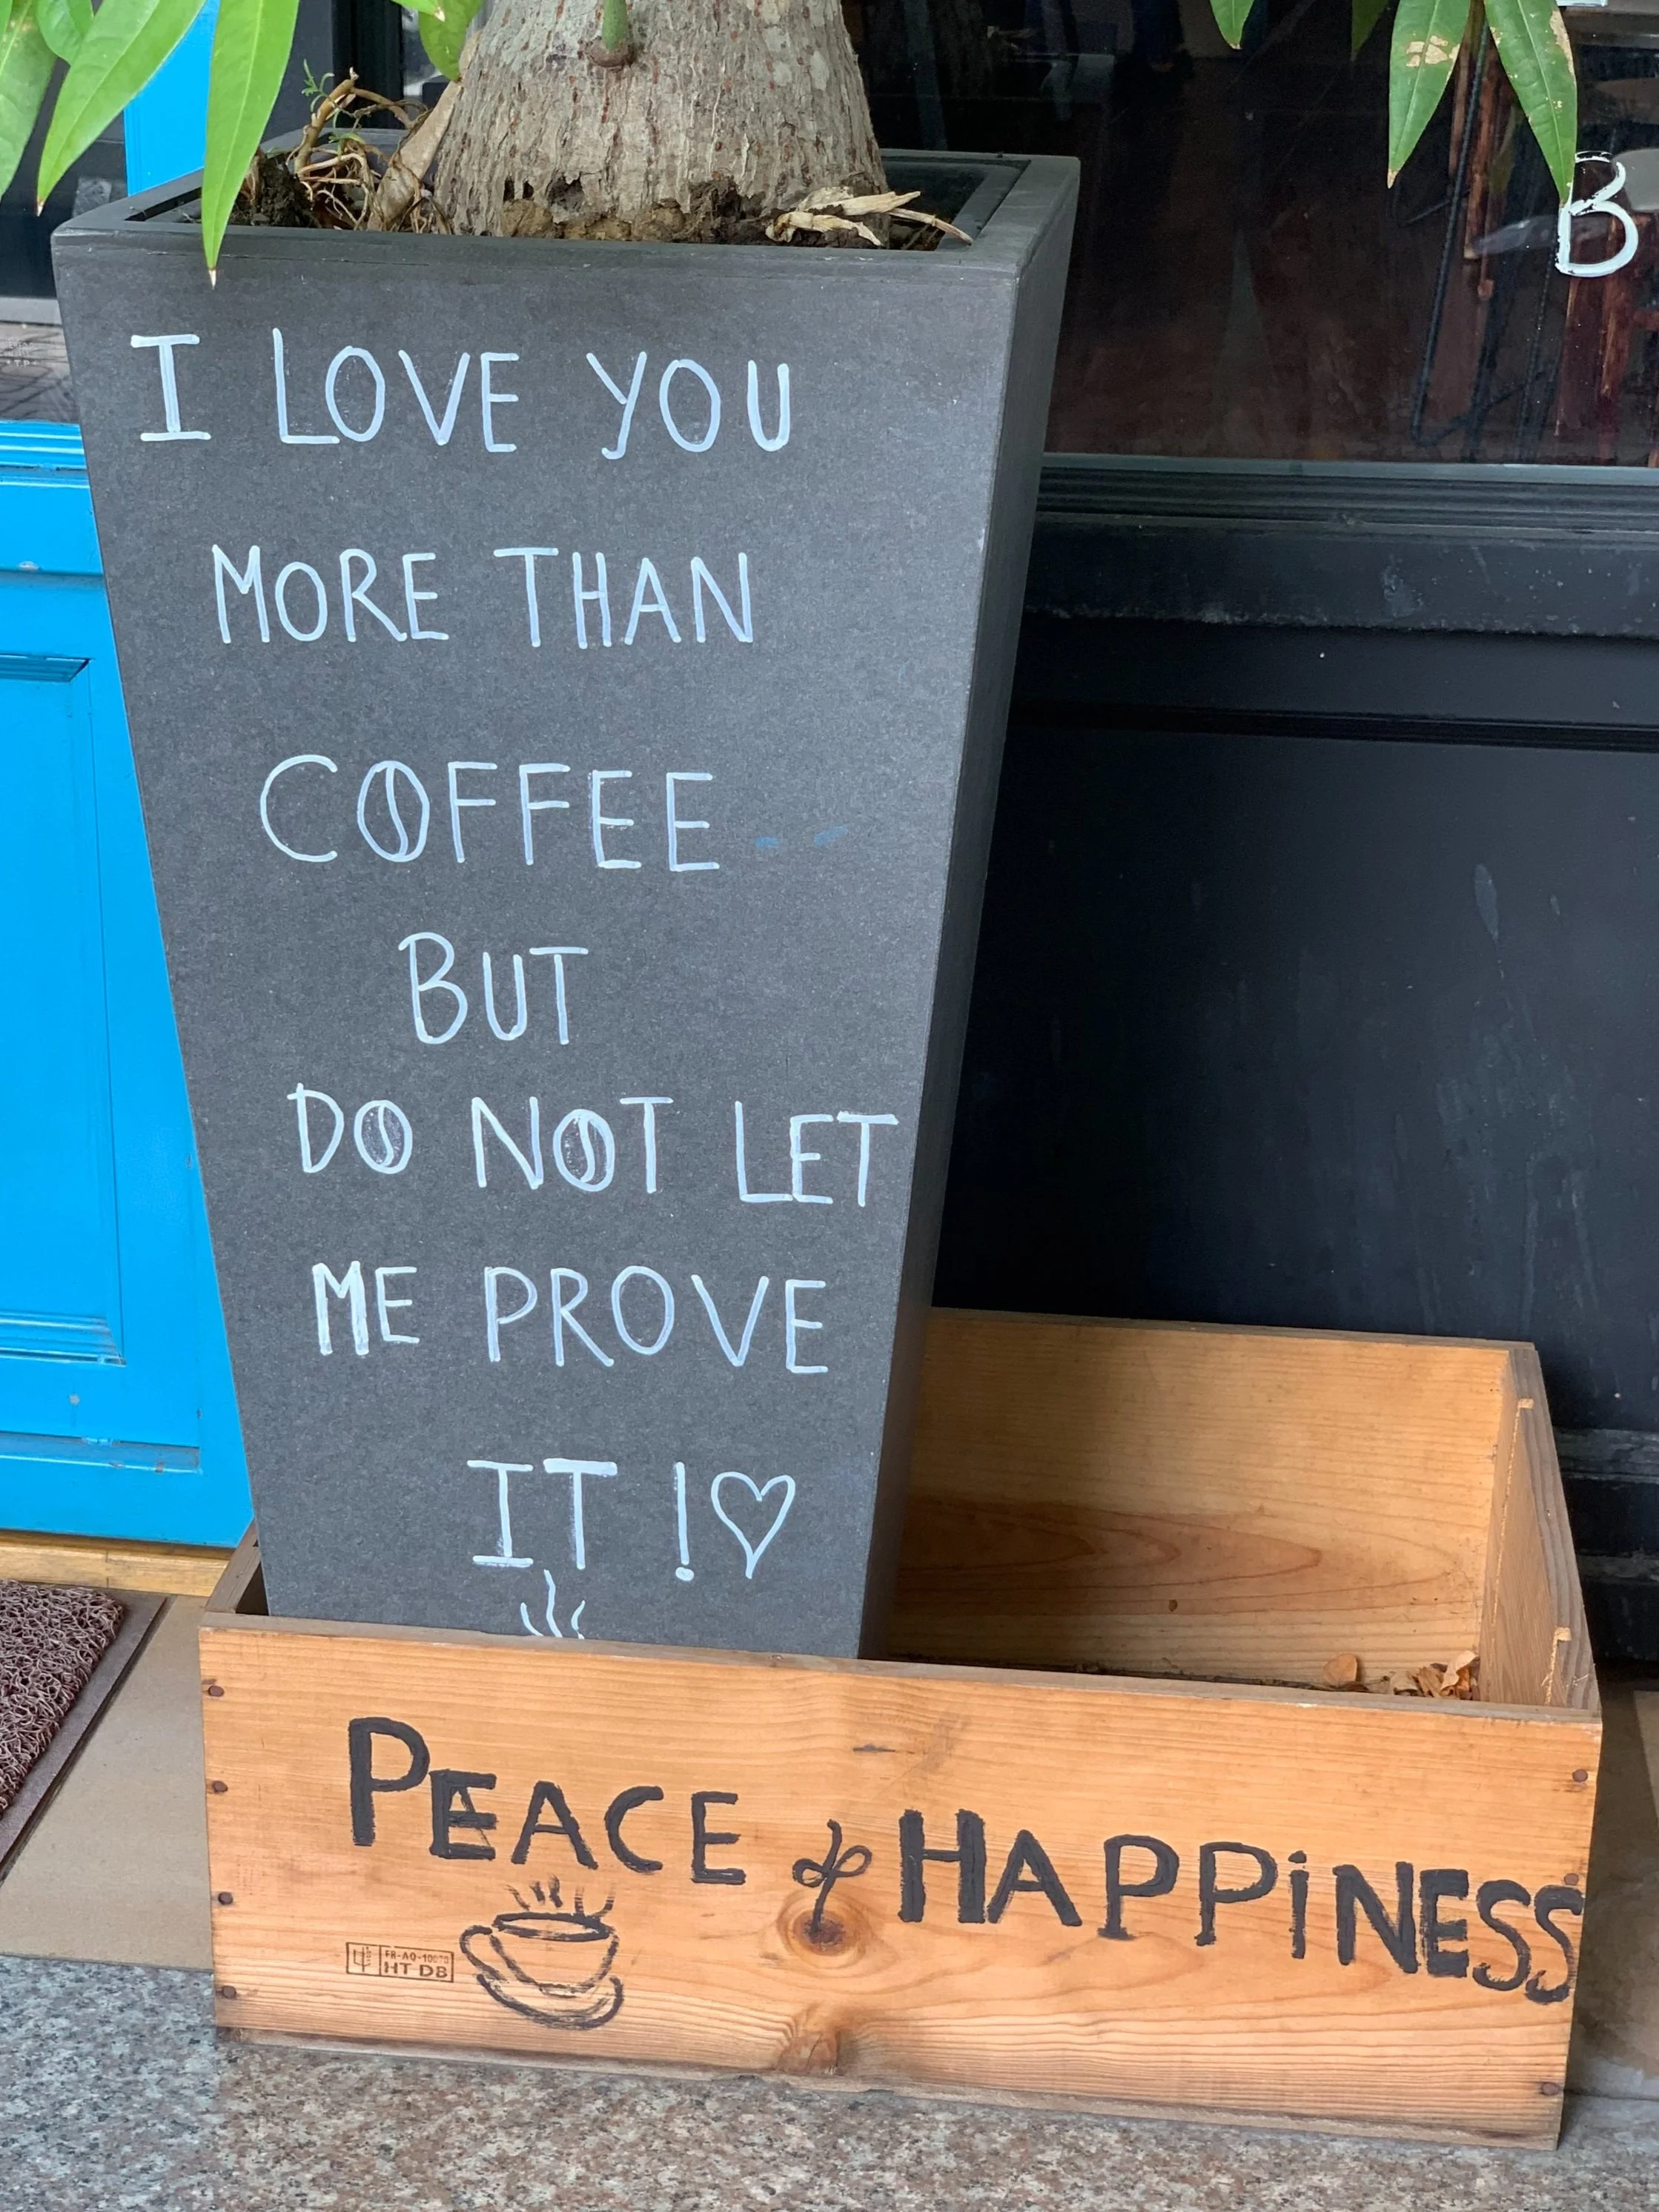 B
I LOVE YOU
MORE THAN
COFFEE
BUT
DO NOT LET
ME PROVE
IT !♡
PEACE & HAPPINESS
HT DB